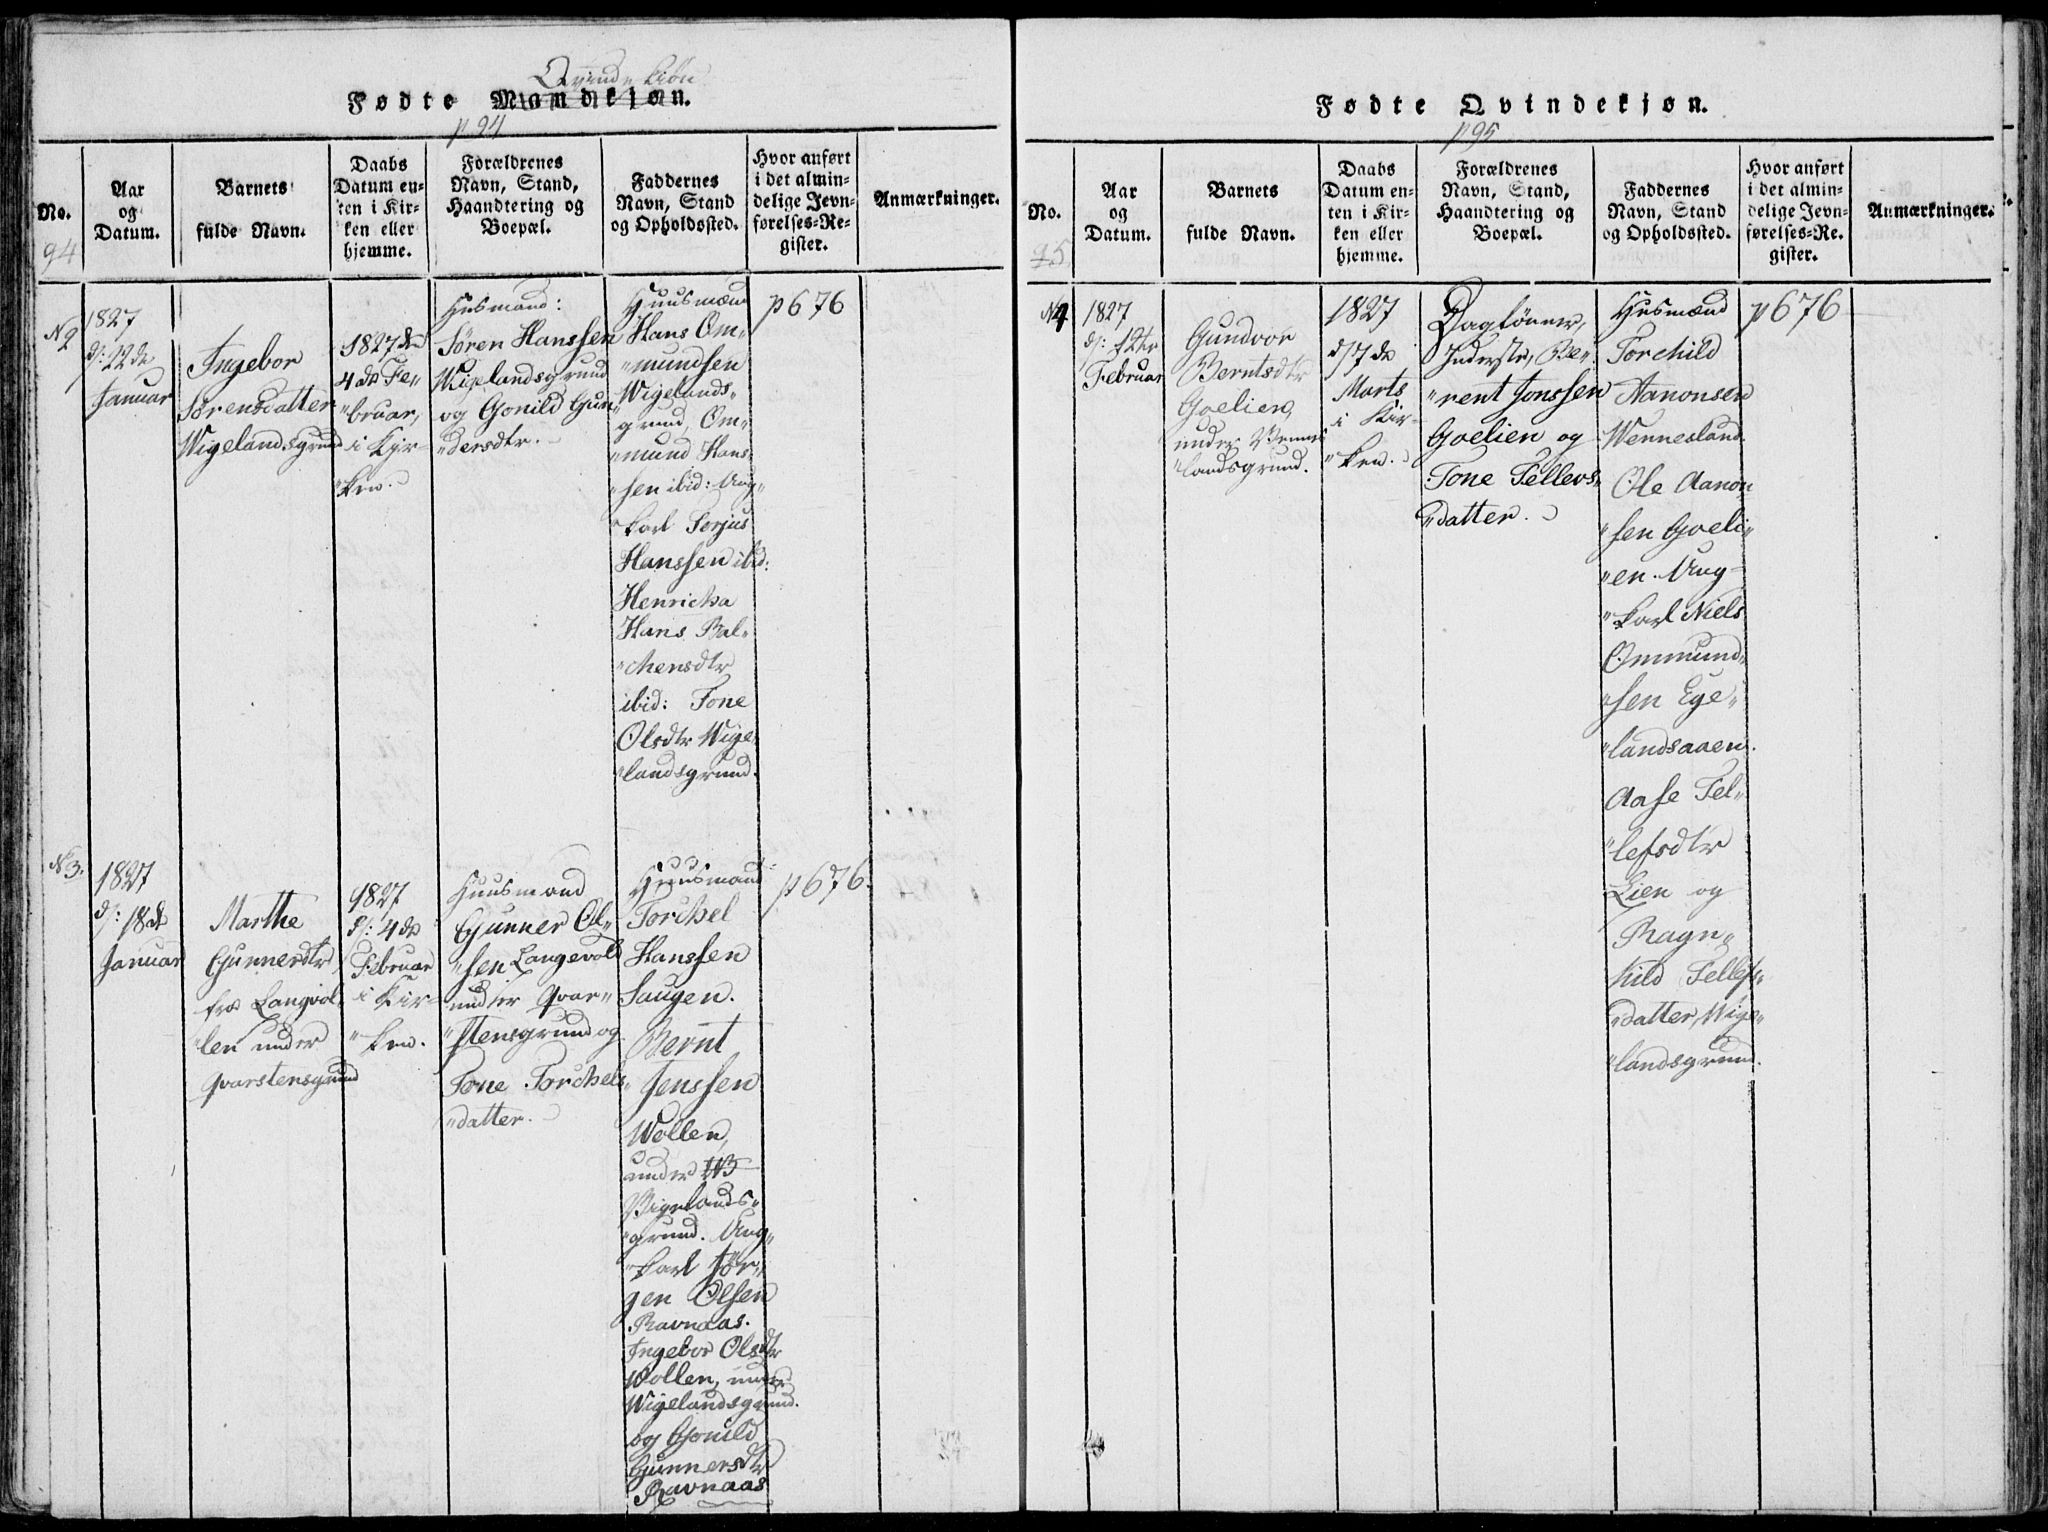 Qvindekiön
Fødte Mandkjøn.
p 94
No.
94
Aar
og
Datum.
Barnets
fulde Navn.
Daabs
Datum en-
ten i Kir-
ken eller
hjemme.
Forældrenes
Navn, Stand,
Haandtering og
Boepæl.
Faddernes
Navn, Stand
og Opholdssted.
Hvor anført
i det almin-
delige Jevn-
førelses-Re-
gister.
Anmærkninger.
N 2
1827
d: 22de
Januar
Ingebor
Sørensdatter
Wigelandsgrund
1827 den
4de Fe„
„bruar,
i Kyr-
„ken.
Husmand:
Søren Hanssen
Wigelandsgrund
og Gonild Gun„
„dersdtr.
Huusmænd
Hans Om„
„mundsen
Wigelands„
grund, Om„
„mund Hans„
„sen ibid: Ung„
„karl Torjus
Hanssen ibid:
Henricha
Hans Bal„
„chensdtr
ibid: Tone
Olsdtr Wige„
„landsgrund.
p 676
N 3.
1827
d: 18de
Januar
Marthe
Gunnersdtr
fra Langvol„
„len under
Qvarstensgrund
1827
d: 4de
Februar
i Kir-
„ken.
Huusmand
Gunner Ol„
„sen Langevold
under Qvar„
„stensgrund og
Tone Torchels„
„datter.
Huusmand
Torchel
Hanssen
Haugen.
Bernt
Jenssen
Wollen,
under
Vigelands„
„grund. Ung„
„karl Jör„
gen Olsen
Ravnaas.
Ingebor Olsdtr
Wollen, under
Wigelandsgrund.
og Gonild
Gunnersdtr
Ravnaas
p 676.
Fødte Qvindekjøn.
p 95
No.
95
Aar
og
Datum.
Barnets
fulde Navn.
Daabs
Datum en-
ten i Kir-
ken eller
hjemme.
Forældrenes
Navn, Stand,
Haandtering og
Boepæl.
Faddernes
Navn, Stand
og Opholdssted.
Hvor anført
i det almin-
delige Jevn-
førelses-Re-
gister.
Anmærkninger.
N 4
1827
d: 12te
Februar
Gundvor
Berntsdtr
Goelien,
under Vennes
„landsgrund.
1827
d 7de
Marts
i Kir-
„ken.
Daglönner,
Inderste, Be„
„rent Jonssen
Goelien og
Tone Tellevs„
„datter.
Husmænd
Torchild
Aanonsen
Wennesland.
Ole Aanon
„sen Goeli„
„en. Ung-
„karl Niels
Ommund„
„sen Ege„
„landsaaen.
Aase Tel„
„lefsdtr
Lien og
Ragn„
hild Tellefs„
„datter, Wige„
„landsgrund.
p 676